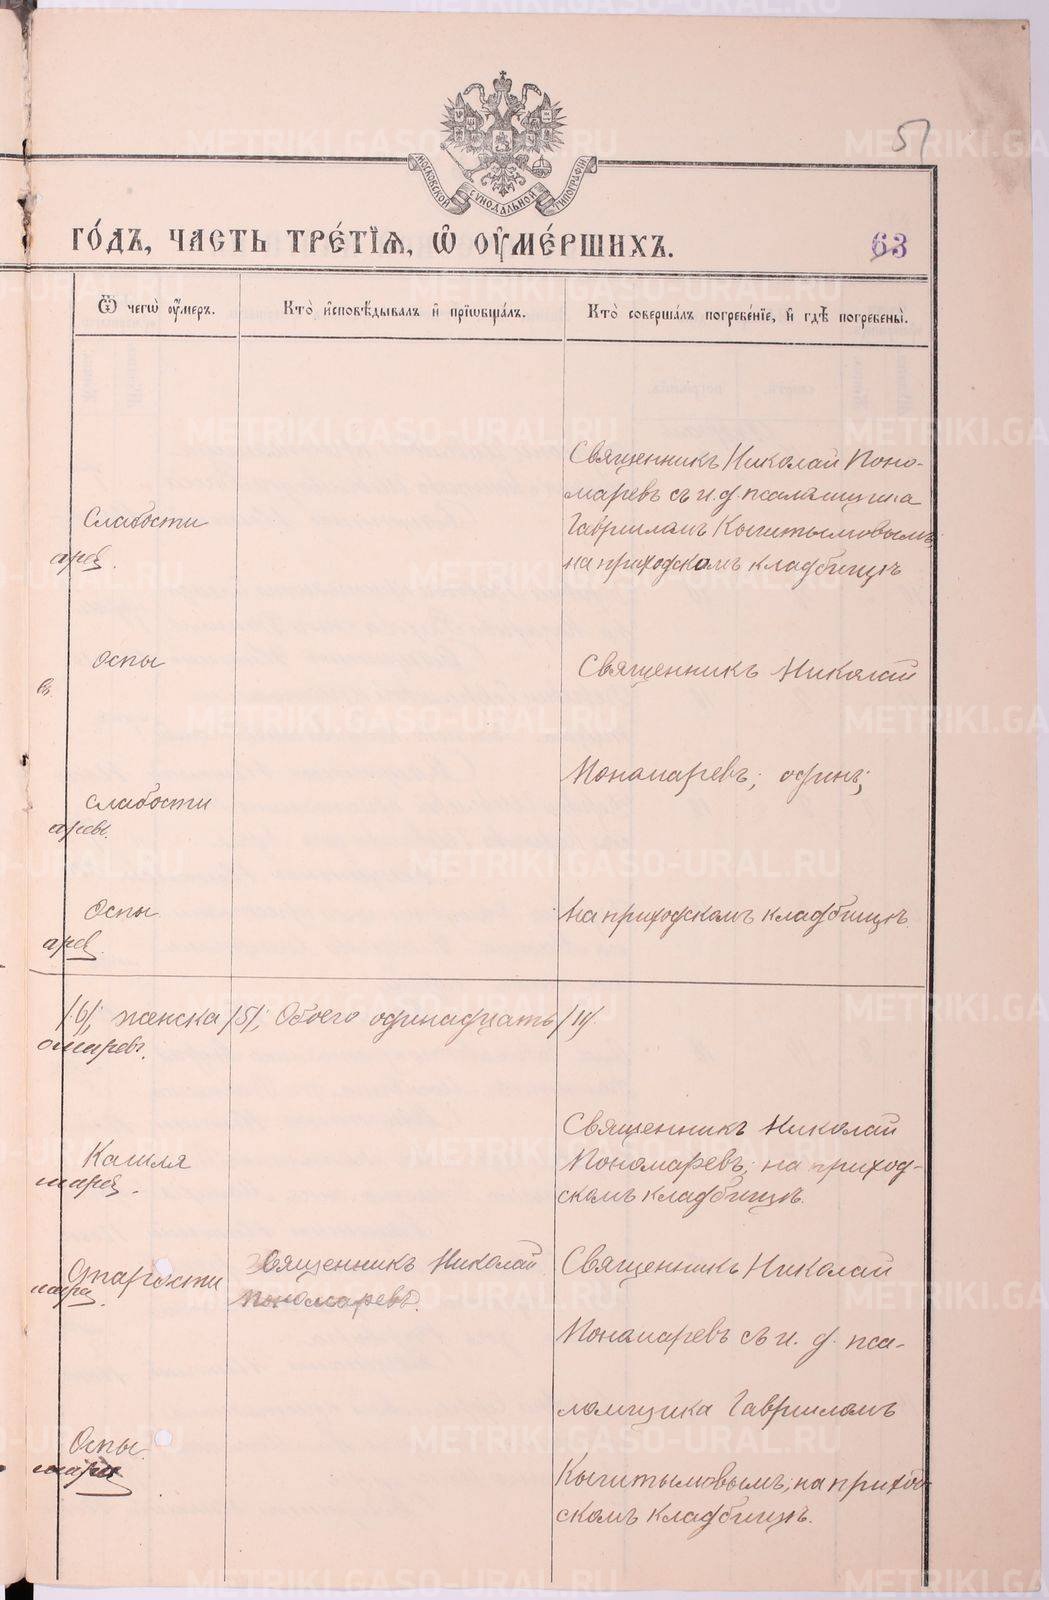 51
МОСКОВСКОЙ СѴНОДАЛЬНОЙ ТИПОГРАФІИ
ГО́ДЪ, ЧАСТЬ ТРЕ́ТІѦ, Ѡ҆ ОУ҆МЕ́РШИХЪ.
63
Ѿ чегѡ̀ оу҆́меръ.
Кто̀ и҆сповѣ́дывалъ и҆ прїѡбща́лъ.
Кто̀ соверша́лъ погребе́нїе, и҆ гдѣ̀ погребены̀.
Священникъ Николай Поно-
маревъ съ и. д. псаломщика
Слабости
Гавриломъ Кыштымовымъ;
на приходскомъ кладбищѣ
Оспы
Священникъ Николай
Пономаревъ; одинъ;
Слабости
Оспы
на приходскомъ кладбищѣ.
/6/; женска /5/; Обоего одинадцать /11/
омаревъ.
Священникъ Николай
Кашля
Пономаревъ; на приход-
скомъ кладбищѣ.
Старости
Священникъ Николай
Пономаревъ.
Священникъ Николай
Пономаревъ съ и. д. пса-
ломщика Гавриломъ
Оспы
Кыштымовымъ; на приход-
скомъ кладбищѣ.
METRIKI.GASO-URAL.RU